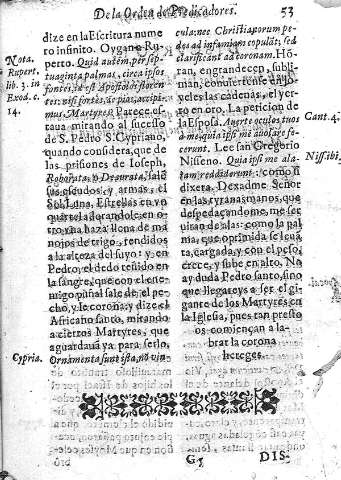 De la Orden de Predicadores.
53
dize en la Escritura nume
ro infinito. Oygan a Ru-
perto. Quid autem per sep-
tuaginta palmas, circa ipsos
fontes, id est Apostolos floren-
tes: nisi fontes, ac pias, accipi-
mus Martyres? Parece es-
taua mirando al sucesso
de S. Pedro S. Cypriano,
quando considera, que de
las prisiones de Ioseph,
Roborata, o Deaurata, salē
sus escudos, y armas, el
Sol, Luna, Estrellas en vn
quartel adorandole, en o-
tro vna haza llena de ma
nojos de trigo, tendidos
a la alteza del suyo: y en
Pedro, el dedo teñido en
la sangre, que con el ene-
migo puñal sale de el pe-
cho, y le corona; y dize el
Africano santo, mirando
a ciertos Martyres, que
aguardauā ya para serlo,
Ornamenta sunt ista, nō vin
Nota.
Rupert.
lib. 3. in
Exod. c.
14.
Cypria.
cula: nec Christianorum pe-
des ad infamiam copulāt; sed
clarificant ad coronam. Hō-
ran, engrandecen, subli-
man, conuiertense en jo-
yeles las cadenas, el yer-
ro en oro. La peticion de
la Esposa. Auerte oculos tuos
a me, quia ipsi me auolare fe-
cerunt. Lee san Gregorio
Nisseno. Quia ipsi me ala-
tam reddiderunt: como si
dixera. Dexadme Señor
en las tyranas manos, que
despedaçandome, me ser
uiran de alas: como la pal
ma, que oprimida se leuā
ta, cargada, y con el peso,
crece, y sube en alto. No
ay duda Pedro santo, sino
que llegareys a ser el gi-
gante de los Martyres en
la Iglesia, pues tan presto
os comiençan a la-
brar la corona
hereges.
Cant. 4.
Niss. ibi.
DIS-